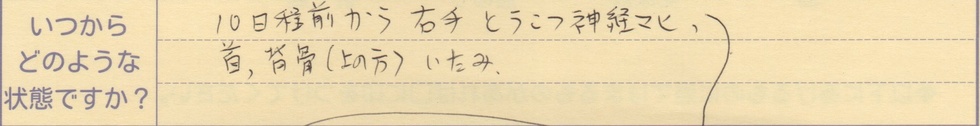 いつから
どのような
状態ですか？
10日程前から 右手 とうこつ神経マヒ、
首、背骨(上の方) いたみ、